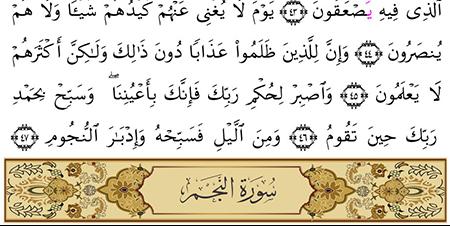 ٱلَّذِى فِيهِ يَصْعَقُونَ ٤٣ يَوْمَ لَا يُغْنِى عَنْهُمْ كَيْدُهُمْ شَيْـًٔا وَلَا هُمْ
يُنصَرُونَ ٤٤ وَإِنَّ لِلَّذِينَ ظَلَمُوا۟ عَذَابًا دُونَ ذَٰلِكَ وَلَـٰكِنَّ أَكْثَرَهُمْ
لَا يَعْلَمُونَ ٤٥ وَٱصْبِرْ لِحُكْمِ رَبِّكَ فَإِنَّكَ بِأَعْيُنِنَا ۖ وَسَبِّحْ بِحَمْدِ
رَبِّكَ حِينَ تَقُومُ ٤٦ وَمِنَ ٱلَّيْلِ فَسَبِّحْهُ وَإِدْبَـٰرَ ٱلنُّجُومِ ٤٧
سُورَةُ النَّجْمِ